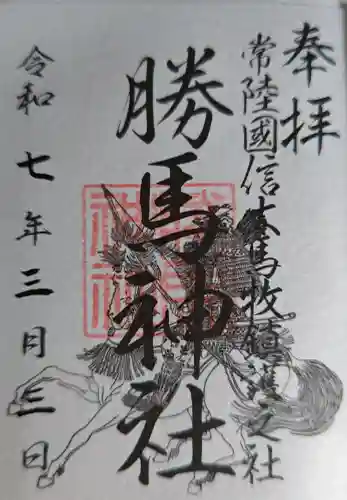 奉拝
常陸國信太馬牧鎮護之社
勝馬神社
令和七年三月三日